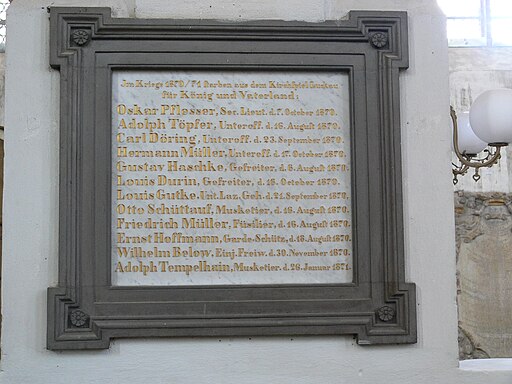 Im Kriege 1870/71 starben aus dem Kirchspiel Luckau
für König und Vaterland:
Oskar Pflesser, Sec. Lieut. d. 7. October 1870.
Adolph Töpfer, Unteroff. d. 16. August 1870.
Carl Döring, Unteroff. d. 23. September 1870.
Hermann Müller, Unteroff. d. 17. October 1870.
Gustav Haschke, Gefreiter, d. 6. August 1870.
Louis Durin, Gefreiter, d. 16. October 1870.
Louis Gutke, Unt. Laz. Geh. d. 21. September 1870.
Otto Schüttauf, Musketier, d. 16. August 1870.
Friedrich Müller, Füsilier, d. 16. August 1870.
Ernst Hoffmann, Garde-Schütz, d. 18. August 1870.
Wilhelm Below, Einj. Freiw. d. 30. November 1870.
Adolph Tempelhain, Musketier, d. 26. Januar 1871.